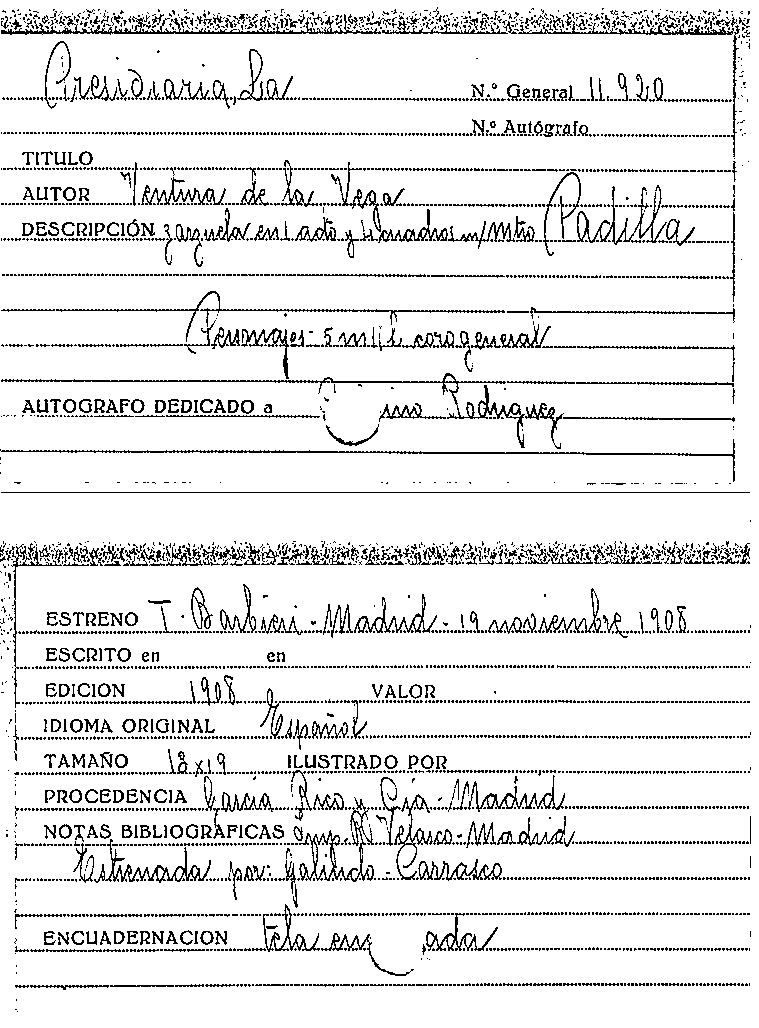 Presidiaria, La
N.º General 11.920
N.º Autógrafo
TITULO
AUTOR Ventura de la Vega
DESCRIPCIÓN zarzuela en 1 acto y 4 cuadros m/ mtro Padilla
Personajes - 5 m 11 h coro general
AUTOGRAFO DEDICADO a ino Rodriguez
ESTRENO T. Barbieri - Madrid - 19 noviembre 1908
ESCRITO en en
EDICION 1908 VALOR
IDIOMA ORIGINAL Español
TAMAÑO 13x19 ILUSTRADO POR
PROCEDENCIA García Rico y Cía - Madrid
NOTAS BIBLIOGRAFICAS Imp. R. Velasco - Madrid
Estrenada por: Galindo - Carrasco
ENCUADERNACION tela en ada